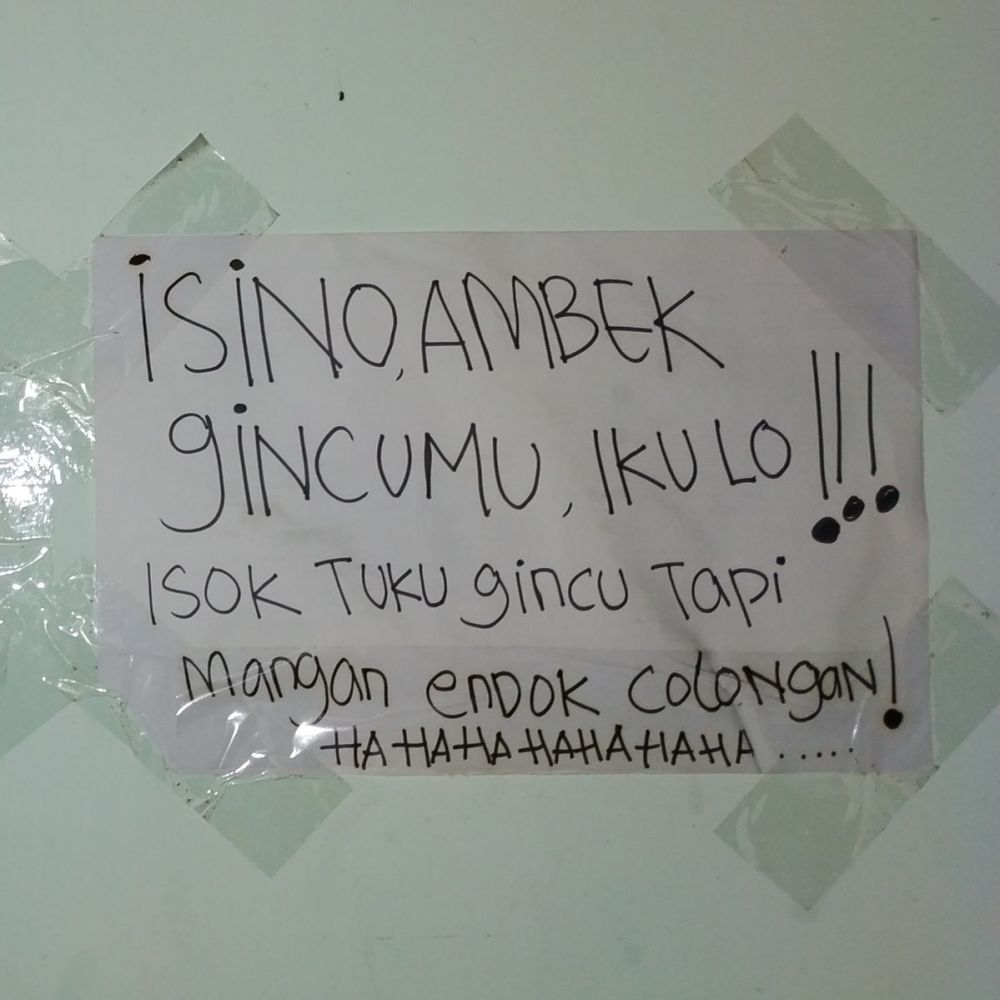 iSiNO, AMBEK
giNCUMU, IKU LO!!!
ISOK TUKU gincu Tapi
Mangan enDOK coLoNgaN!
HAHAHAHAHAHAHA.....